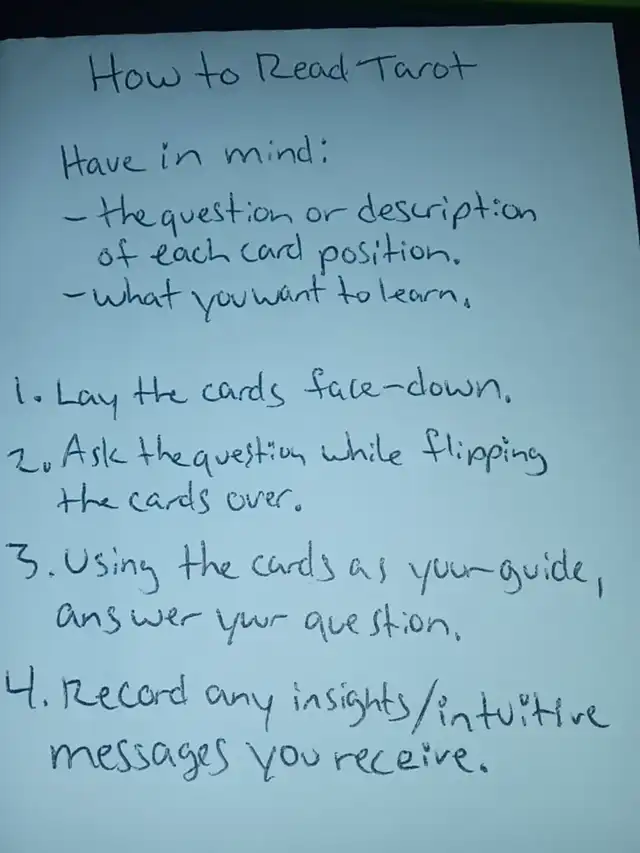 How to Read Tarot
Have in mind:
- the question or description
of each card position.
- what you want to learn.
1. Lay the cards face-down.
2. Ask the question while flipping
the cards over.
3. Using the cards as your guide,
answer your question.
4. Record any insights/intuitive
messages you receive.